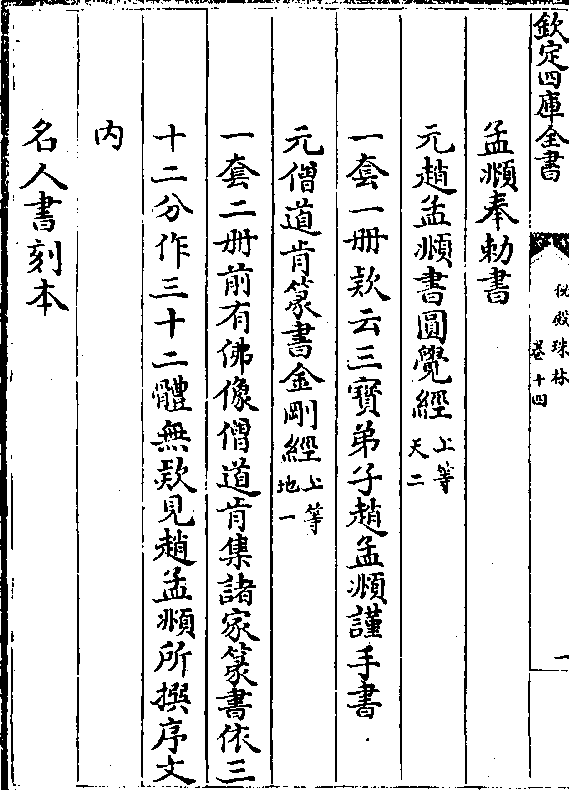 欽定四庫全書
秘殿珠林
卷十四
一
孟頫奉勅書
元趙孟頫書圓覺經上等天二
一套一册欵云三寳弟子趙孟頫謹手書
元僧道肯篆書金剛經上等地一
一套二册前有佛像僧道肯集諸家篆書依三
十二分作三十二體無欵見趙孟頫所撰序文
内
名人書刻本